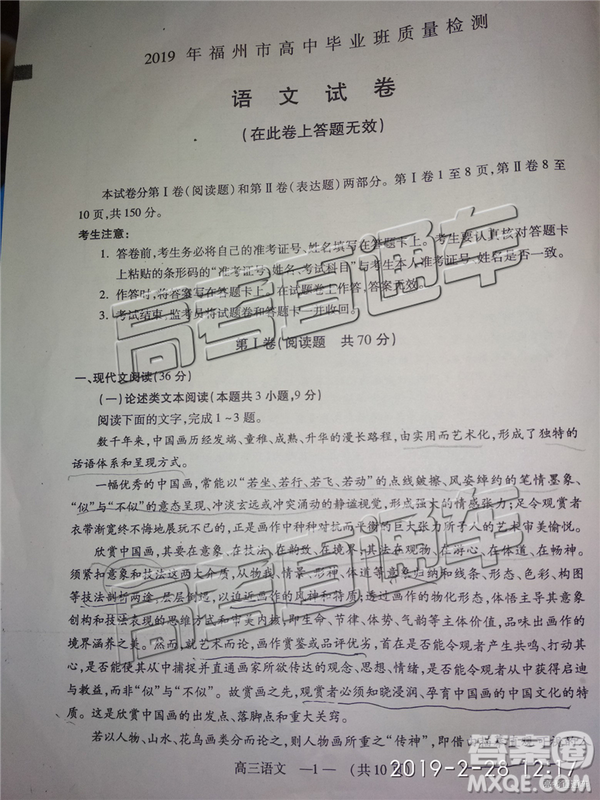 2019 年福州市高中毕业班质量检测
语 文 试 卷
(在此卷上答题无效)
本试卷分第Ⅰ卷(阅读题)和第Ⅱ卷(表达题)两部分。第Ⅰ卷 1 至 8 页,第Ⅱ卷 8 至
10 页,共 150 分。
考生注意:
1. 答卷前,考生务必将自己的准考证号、姓名填写在答题卡上。考生要认真核对答题卡
上粘贴的条形码的“准考证号、姓名、考试科目”与考生本人准考证号、姓名是否一致。
2. 作答时,将答案写在答题卡上。在试题卷上作答,答案无效。
3. 考试结束,监考员将试题卷和答题卡一并收回。
第Ⅰ卷(阅读题 共 70 分)
一、现代文阅读(36 分)
(一)论述类文本阅读(本题共 3 小题,9 分)
阅读下面的文字,完成 1~3 题。
数千年来,中国画历经发端、童稚、成熟、升华的漫长路程,由实用而艺术化,形成了独特的
话语体系和呈现方式。
一幅优秀的中国画,常能以“若坐、若行、若飞、若动”的点线皴擦、风姿绰约的笔情墨象、
“似”与“不似”的意态呈现、冲淡玄远或冲突涌动的静谧视觉,形成强大的情感张力;足令观赏者
衣带渐宽终不悔地展玩不已的,正是画作中种种对抗而平衡的巨大张力所予人的艺术审美愉悦。
欣赏中国画,其要在意象、在技法、在韵致、在境界;其法在观物、在游心、在体道、在畅神。
须紧扣意象和技法这两大介质,从物我、情景、形神三个维度的意象归纳和线条、形态、色彩、构图
等技法剖析两途,层层倒追,以迫近画作的风神和特质;透过画作的物化形态,体悟主导其意象
创构和技法表现的思维方式和审美内蕴,最终从画作的生命、节律、体势、气韵等主体价值,品味出画作的
境界涵养之美。然而,就艺术而论,画作赏鉴或品评优劣,首在是否能令观者产生共鸣、打动其
心,是否能使其从中捕捉并直通画家所欲传达的观念、思想、情绪,是否能令观者从中获得启迪
与教益,而非“似”与“不似”。故赏画之先,观赏者必须知晓浸润、孕育中国画的中国文化的特
质。这是欣赏中国画的出发点、落脚点和重大关窍。
若以人物、山水、花鸟画类分而论之,则人物画所重之“传神”,即借由
高三语文 —1— (共 10
高考直通车
高考直通车
高考直通车
答案圈
MXQE.COM
2019-2-28 12:17